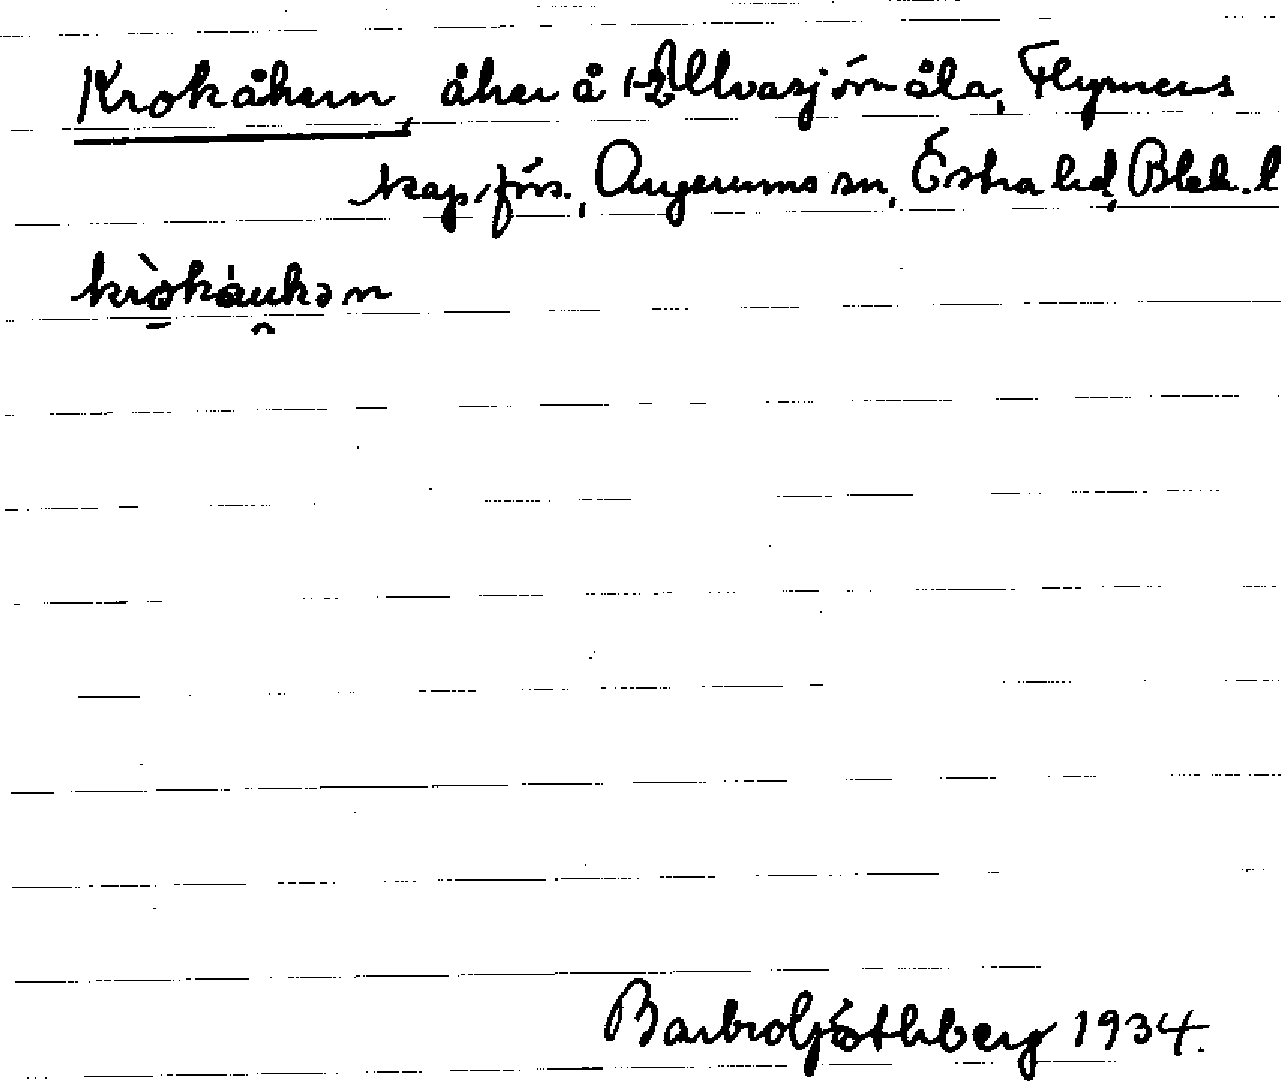 Krokåkern, åker å 1-2 Allvasjömåla, Flymens
kap. förs., Augerums sn, Östra hd, Blek. l
kròkåukən
Barbro Göthberg 1934.